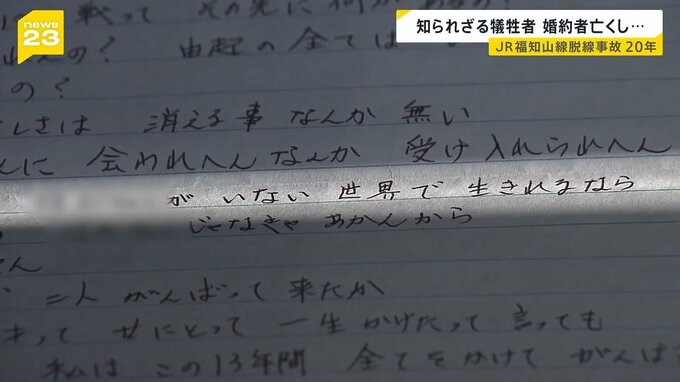 news
23
知られざる犠牲者 婚約者亡くし…
JR福知山線脱線事故 20年
戦って その先に何があるの?
れんの? 由起の全ては
の?
しさは 消える事なんか 無い
んに 会われへんなんか 受け入れられへん
が いない 世界で 生きれるなら
じゃなきゃ あかんから
二人 がんばって 来たか
せにとって 一生かけたって 言っても
私は この13年間 全てをかけて がんば